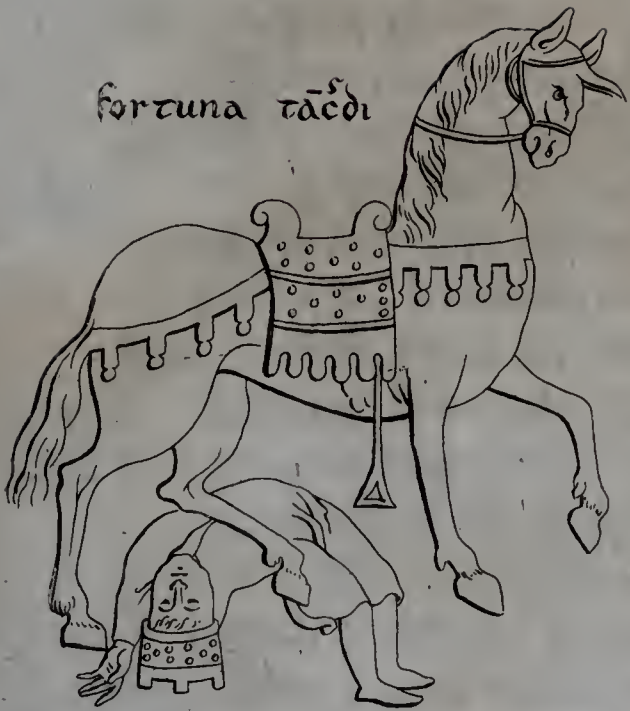 fortuna tāc͛di